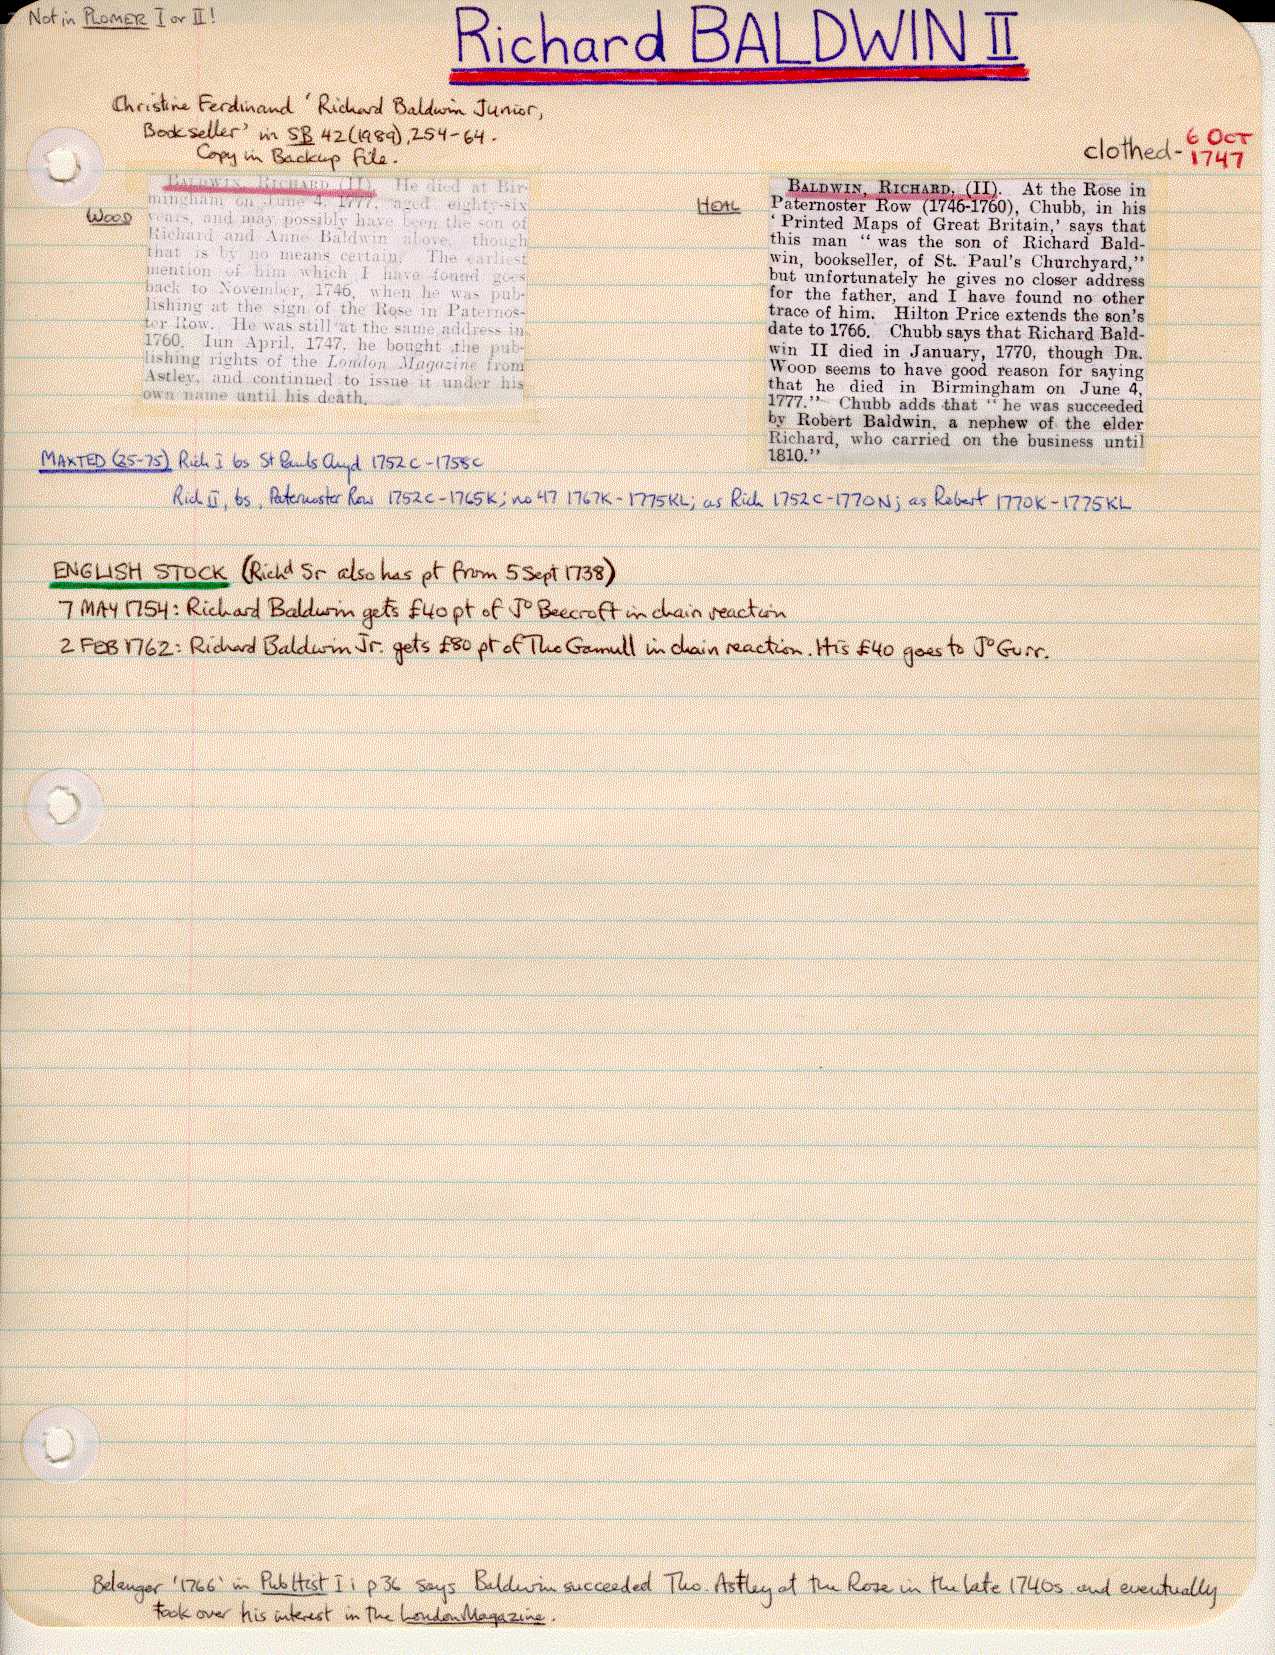 Not in PLOMER I or II!
Richard BALDWIN II
Christine Ferdinand 'Richard Baldwin Junior,
Bookseller' in SB 42 (1989), 254-64.
Copy in Backup file.
clothed - 6 OCT
1747
WOOD
BALDWIN, RICHARD (II). He died at Bir-
mingham on June 4, 1777, aged eighty-six
years, and may possibly have been the son of
Richard and Anne Baldwin above, though
that is by no means certain. The earliest
mention of him which I have found goes
back to November, 1746, when he was pub-
lishing at the sign of the Rose in Paternos-
ter Row. He was still at the same address in
1760. Iun April, 1747, he bought the pub-
lishing rights of the London Magazine from
Astley, and continued to issue it under his
own name until his death.
HEAL
BALDWIN, RICHARD, (II). At the Rose in
Paternoster Row (1746-1760), Chubb, in his
'Printed Maps of Great Britain,' says that
this man "was the son of Richard Bald-
win, bookseller, of St. Paul's Churchyard,"
but unfortunately he gives no closer address
for the father, and I have found no other
trace of him. Hilton Price extends the son's
date to 1766. Chubb says that Richard Bald-
win II died in January, 1770, though DR.
WOOD seems to have good reason for saying
that he died in Birmingham on June 4,
1777." Chubb adds that "he was succeeded
by Robert Baldwin, a nephew of the elder
Richard, who carried on the business until
1810."
MAXTED (25-75) Rich I bs St Pauls Chyd 1752C-1758C
Rich II, bs, Paternoster Row 1752C-1765K; no 47 1767K-1775KL; as Rich 1752C-1770N; as Robert 1770K-1775KL
ENGLISH STOCK (Richd Sr also has pt from 5 Sept 1738)
7 MAY 1754: Richard Baldwin gets £40 pt of Jo Beecroft in chain reaction
2 FEB 1762: Richard Baldwin Jr. gets £80 pt of Tho Gamull in chain reaction. His £40 goes to Jo Gurr.
Belanger '1766' in Pub Hist I i p 36 says Baldwin succeeded Tho. Astley at the Rose in the late 1740s and eventually
took over his interest in the London Magazine.